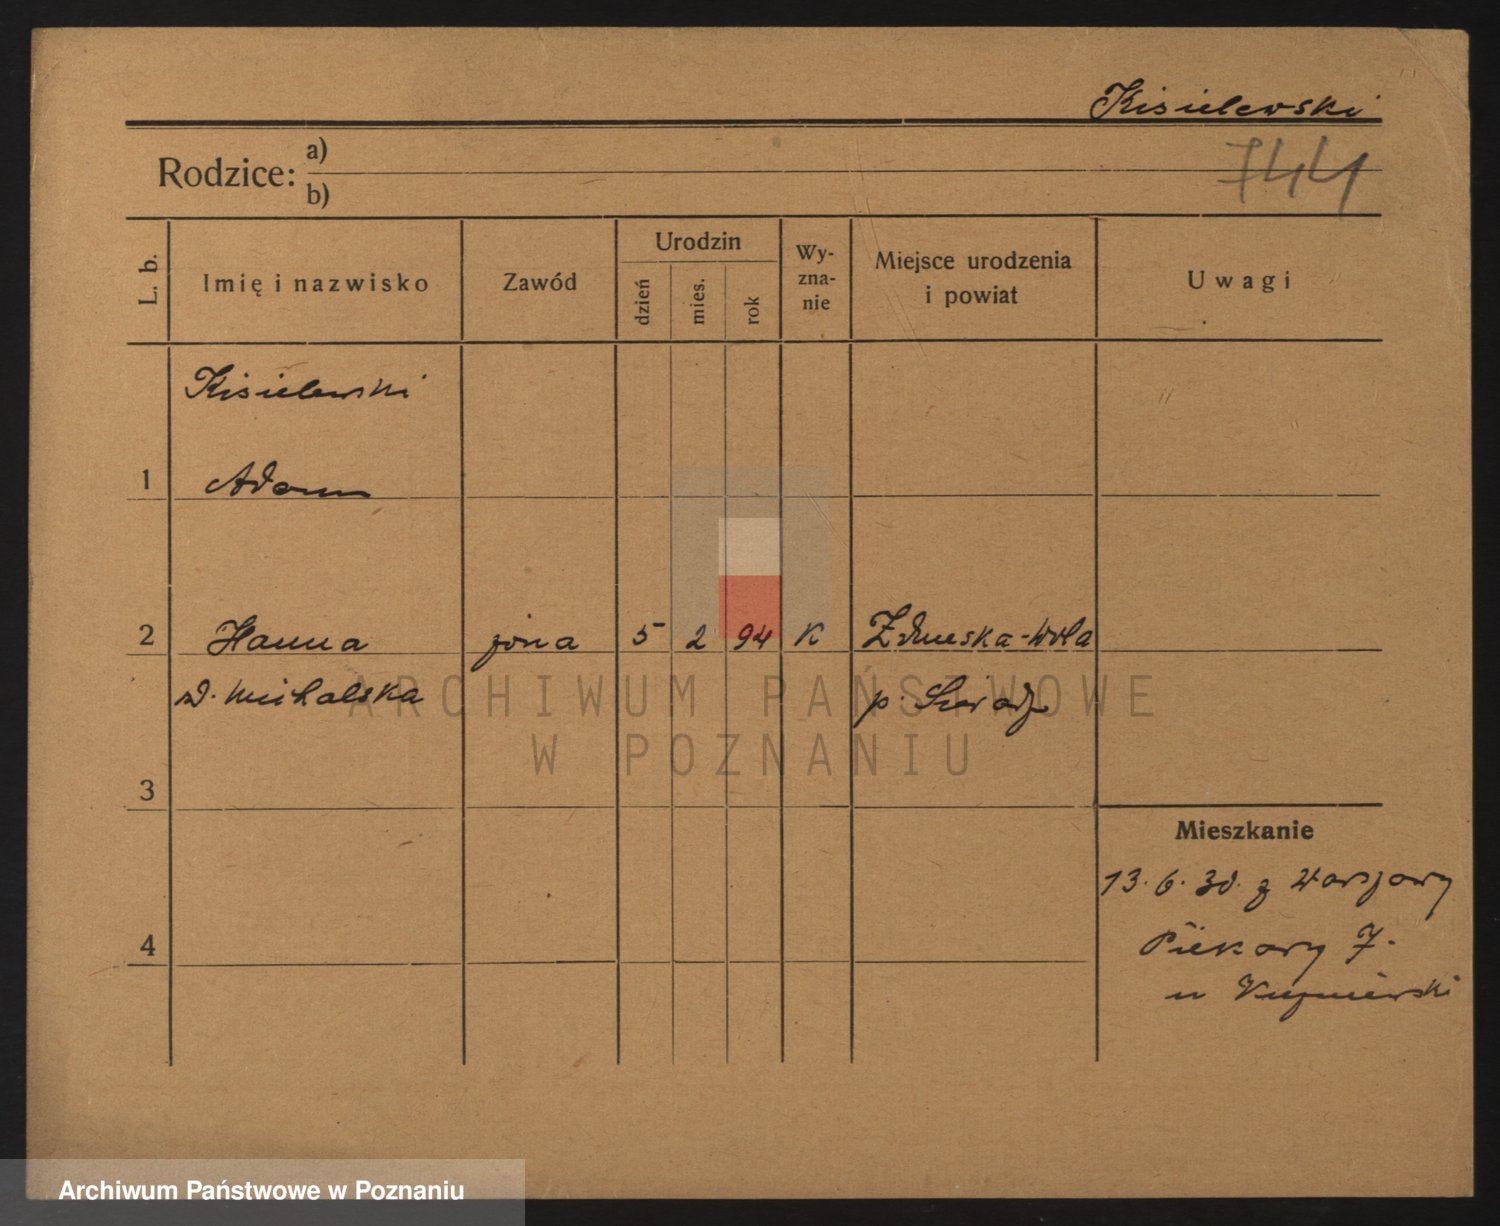 Kisielewski
744
Rodzice: a)
b)
L. b.
Imię i nazwisko
Zawód
Urodzin
dzień
mies.
rok
Wy-
zna-
nie
Miejsce urodzenia
i powiat
Uwagi
Kisielewski
1 Adam
2 Hanna żona 5 2 94 K Zduńska-Wola
d. Michalska p. Sieradz
3
Mieszkanie
13.6.30. z Warszawy
4 Piekary 7.
u
ARCHIWUM PAŃSTWOWE
W POZNANIU
Archiwum Państwowe w Poznaniu